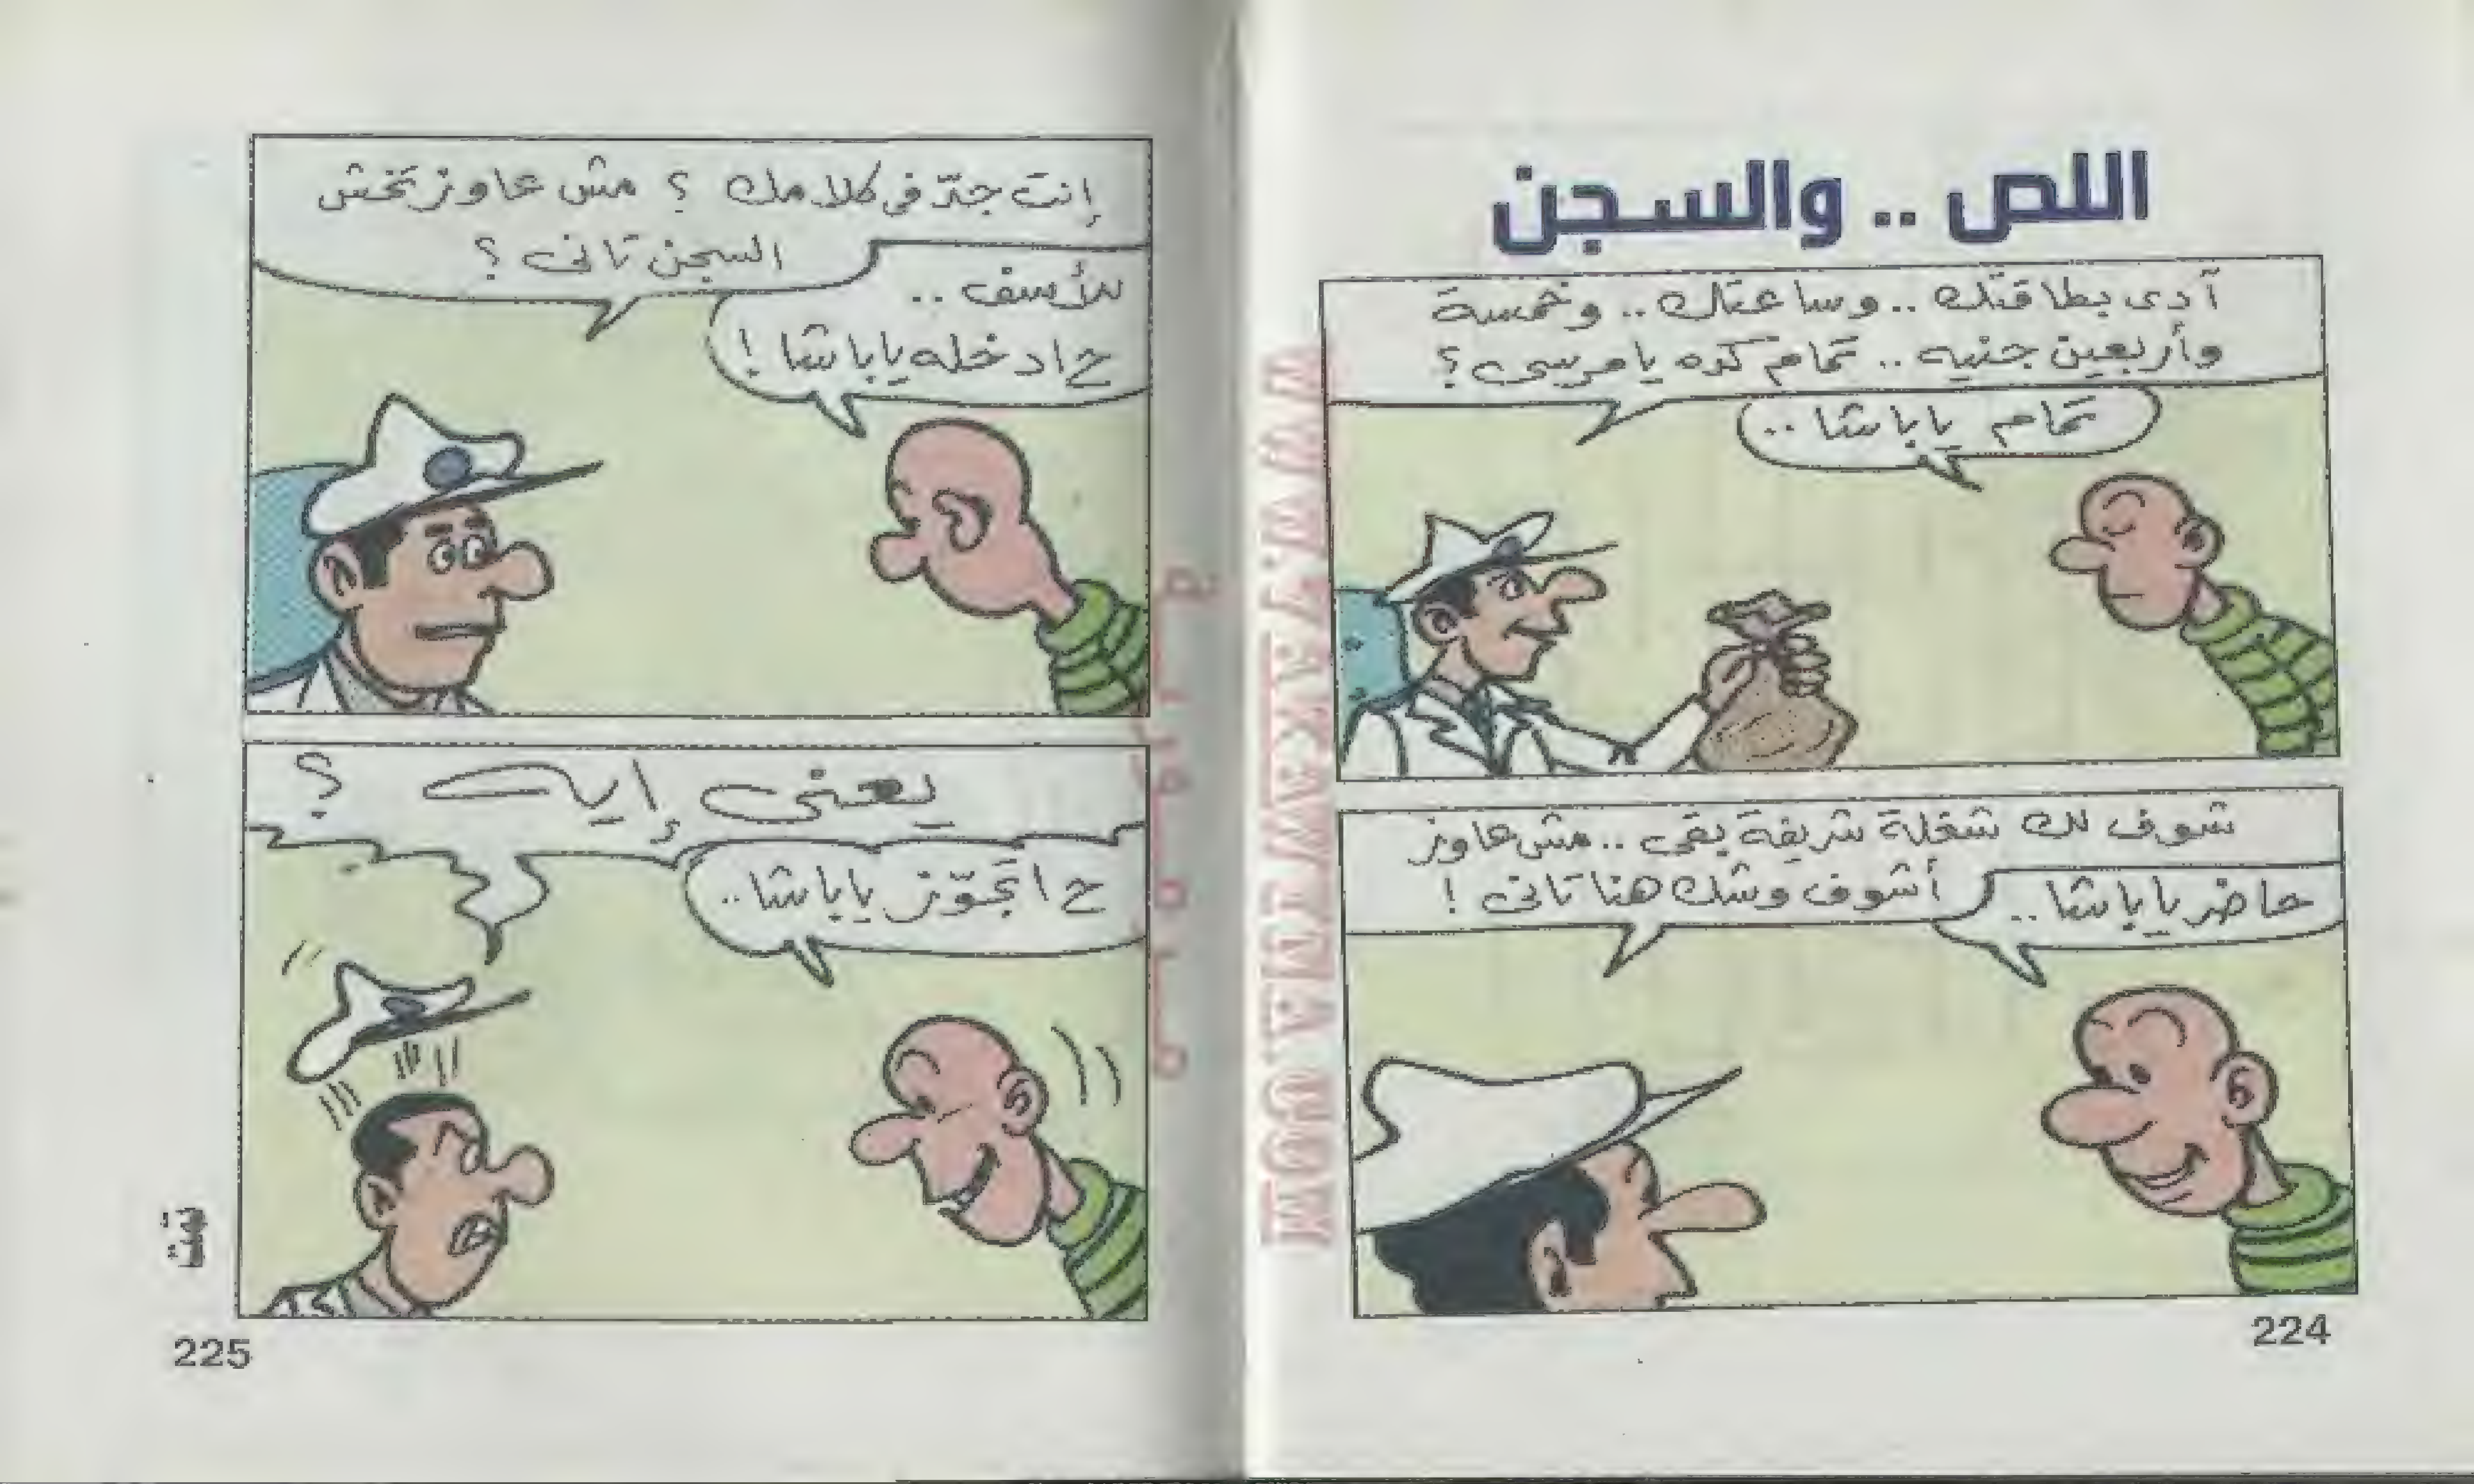 اللص .. والسجن
آدى بطاقتك .. وساعتك .. وخمسة
وأربعين جنيه .. تمام كده يا مرسى ؟
تمام يا باشا ..
شوف لك شغلة شريفة بقى .. مش عاوز
أشوف وشك هنا تانى !
حاضر يا باشا ..
224
إنت جدّ فى كلامك ؟ مش عاوز تخش
السجن تانى ؟
للأسف ..
ح ادخله يا باشا !
يعنى إيه ؟
ح اتجوّز يا باشا ..
تمت
225